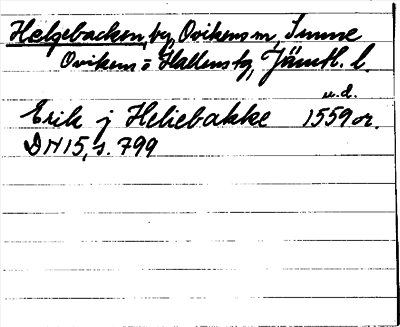 Helgebacken, by, Ovikens sn, Sunne
Ovikens o Hallens tg, Jämtl. l.
u.d.
Erik j Heliebakke 1559 or.
DN 15, s. 799